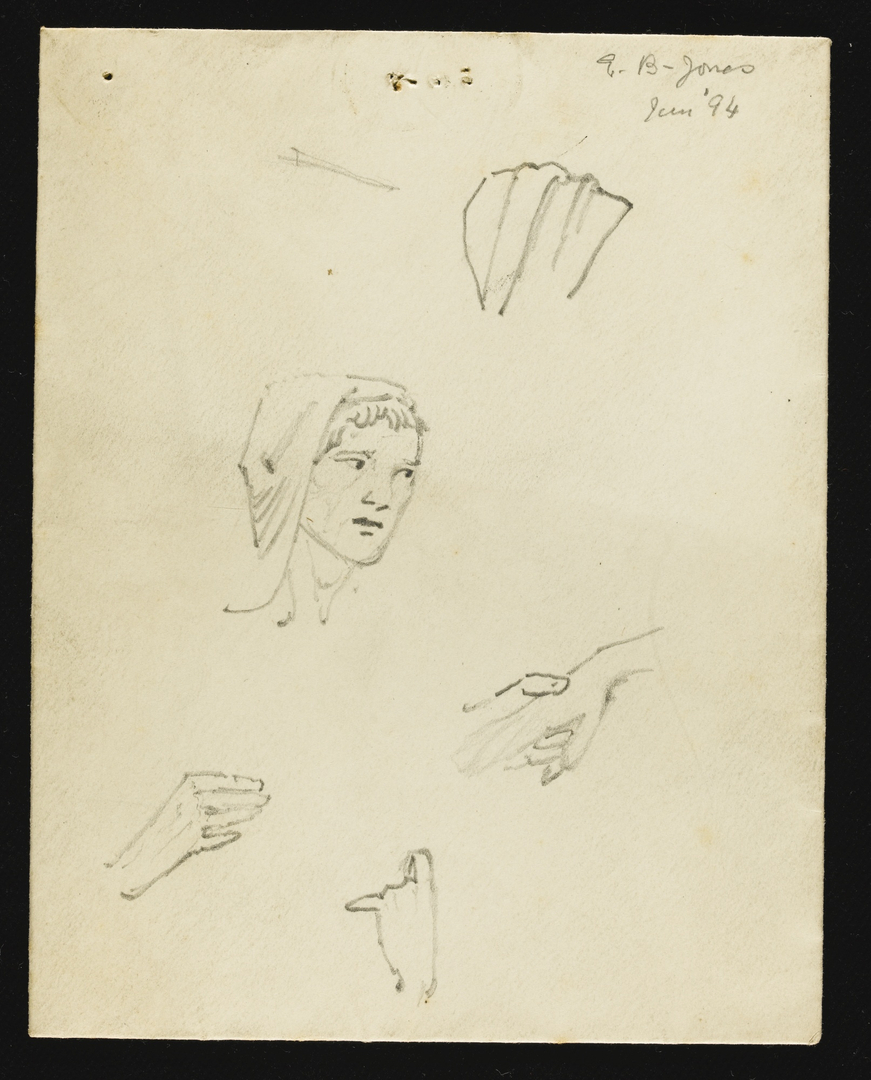 E. B-Jones
Jun '94